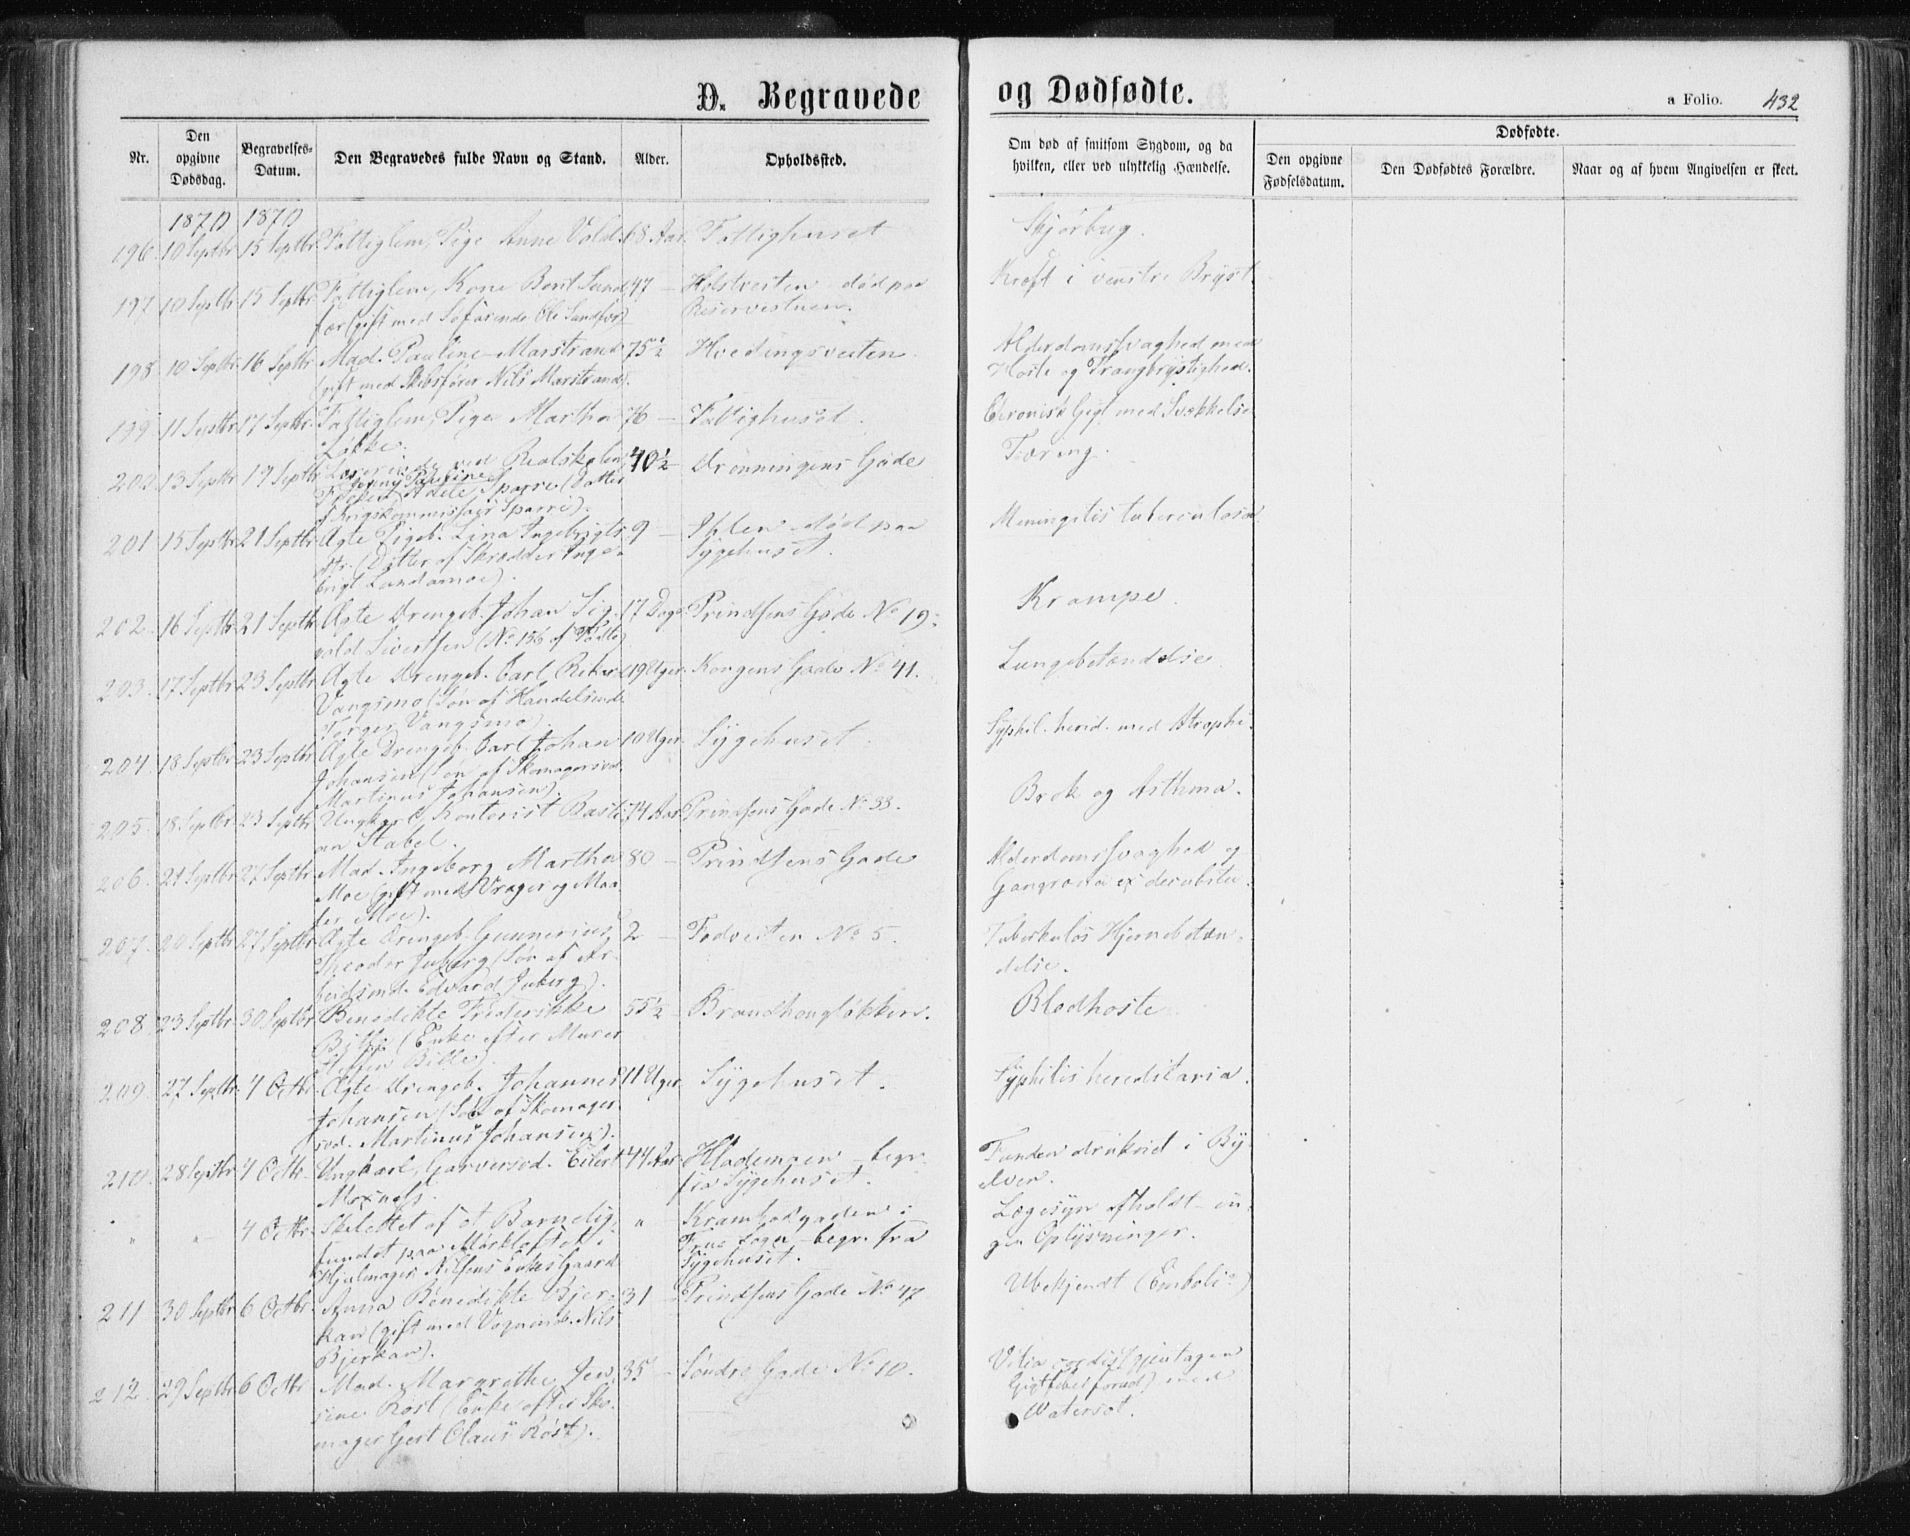 D. Begravede og Dødfødte.
a Folio. 432
Nr.
Den opgivne Dødsdag.
Begravelses-Datum.
Den Begravedes fulde Navn og Stand.
Alder.
Opholdssted.
Om død af smitsom Sygdom, og da hvilken, eller ved ulykkelig Hændelse.
Dødfødte.
Den opgivne Fødselsdatum.
Den Dødfødtes Forældre.
Naar og af hvem Angivelsen er skeet.
1870 1870
196. 10 Septbr. 15 Septbr. Fattiglem, Pige Anne Vold. 68 Aar. Fattighuset Skjørbug.
197 10 Septbr. 15 Septbr. Fattiglem, Kone Berit Sand 47 — Holstveiten - død paa Kræft i venstre Bryst.
fær (gift med Søfarende Ole Sandfær) Reservestuen.
198. 10 Septbr. 16 Septbr. Mad. Pauline Marstrand 75½ Hvedingsveiten. Alderdomssvaghed med
(gift med Skibsfører Nils Marstrand). Hoste og Trangbrystighed.
199. 11 Septbr. 17 Septbr. Fattiglem, Pige Martha 76 — Fattighuset. Chronisk Gigt med Svækkelse
Løkke.
200. 13 Septbr. 19 Septbr. Lærerinde ved Realskolen 40½ Dronningens Gade Tæring.
Jenny Pauline
Adele Sparre (Datter
af Krigskommissair Sparre).
201 15 Septbr. 21 Septbr. Ægte Pigeb. Lina Ingebrigts 9 — Ihlen - død paa Meningitis tuberculosa
dtr. (Datter af Skrædder Inge- Sygehuset.
brigt Lundamoe).
202. 16 Septbr. 21 Septbr. Ægte Drengeb. Johan Sig- 17 Dage. Prindsens Gade No 19. Krampe.
vald Sivertsen (No 156 af Fødte)
203. 17 Septbr. 23 Septbr. Ægte Drengeb. Carl 19 Uger. Kongens Gade No 41. Lungebetændelse
Vangsmo (Søn af Handelsmand
Vangsmo).
204. 18 Septbr. 23 Septbr. Ægte Drengeb. Carl Johan 10 Uger. Sygehuset. Syphil. hered. med Atrophi.
Johansen (Søn af Skomagersvd.
Martinus Johansen).
205. 18 Septbr. 23 Septbr. Ungkarl, Kontorist Basti- 74 Aar. Prindsens Gade No 33. Brok og Asthma.
an Stabel.
206. 21 Septbr. 27 Septbr. Mad. Ingeborg Martha 80 — Prindsens Gade Alderdomssvaghed og
Moe (gift med Vrager og Maa- Gangræna ex decubitu.
ler Moe).
207. 20 Septbr. 27 Septbr. Ægte Drengeb. Gunnerius 2 — Fodveiten No 5. Tuberkuløs Hjernebetæn-
Theodor Juberg (Søn af Ar- delse.
beidsmd. Edvard Juberg).
208. 23 Septbr. 30 Septbr. Benedikte Frederikke 55½ Brandhaugløkken. Blodhoste
Bille (Enke efter Murer
Bille).
209. 27 Septbr. 4 Octbr. Ægte Drengeb. Johannes 11 Uger. Sygehuset. Syphilis hereditaria.
Johansen (Søn af Skomager-
svd. Martinus Johansen).
210. 28 Septbr. 4 Octbr. Ungkarl, Garversvd. Eilert 44 Aar. Hlademoen - begr. Funden druknet i By-
Moxnæs. fra Sygehuset. elven.
" " 4 Octbr. Skelettet af et Barnelig, " Krambodgaden i Lægesyn afholdt - in-
fundet paa Mørkloftet i Frue Sogn - begr. fra gen Oplysninger.
Hjulmager Nilsens Enkes Gaard Sygehuset.
211 30 Septbr. 6 Octbr. Anna Benedikte Bjer- 31 — Prindsens Gade No 47 Ubekjendt (Emboli?)
kan (gift med Vognmd. Nils
Bjerkan).
212. 29 Septbr. 6 Octbr. Mad. Margrethe Jen- 35 — Søndre Gade No 10. Vitia cordis (gjentagen
sine Røst (Enke efter Sko- Gigtfeber forud) med
mager Gert Claus Røst). Vatersot.